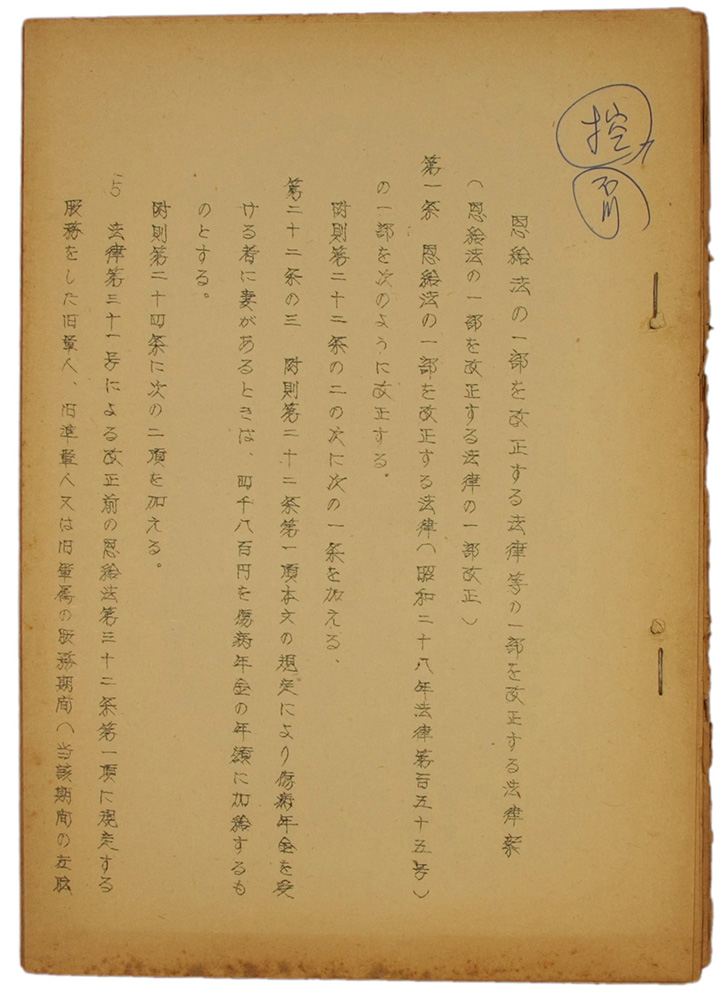 控
恩給法の一部を改正する法律等の一部を改正する法律案
(恩給法の一部を改正する法律の一部改正)
第一条　恩給法の一部を改正する法律(昭和二十八年法律第百五十五号)
の一部を次のように改正する。
附則第二十二条の二の次に次の一条を加える、
第二十二条の三　附則第二十二条第一項本文の規定により傷病年金を受
ける者に妻があるときは、四千八百円を傷病年金の年額に加給するも
のとする。
附則第二十四条に次の二項を加える。
5　法律第三十一号による改正前の恩給法第三十二条第一項に規定する
服務をした旧軍人、旧準軍人又は旧軍属の服務期間(当該期間の在職